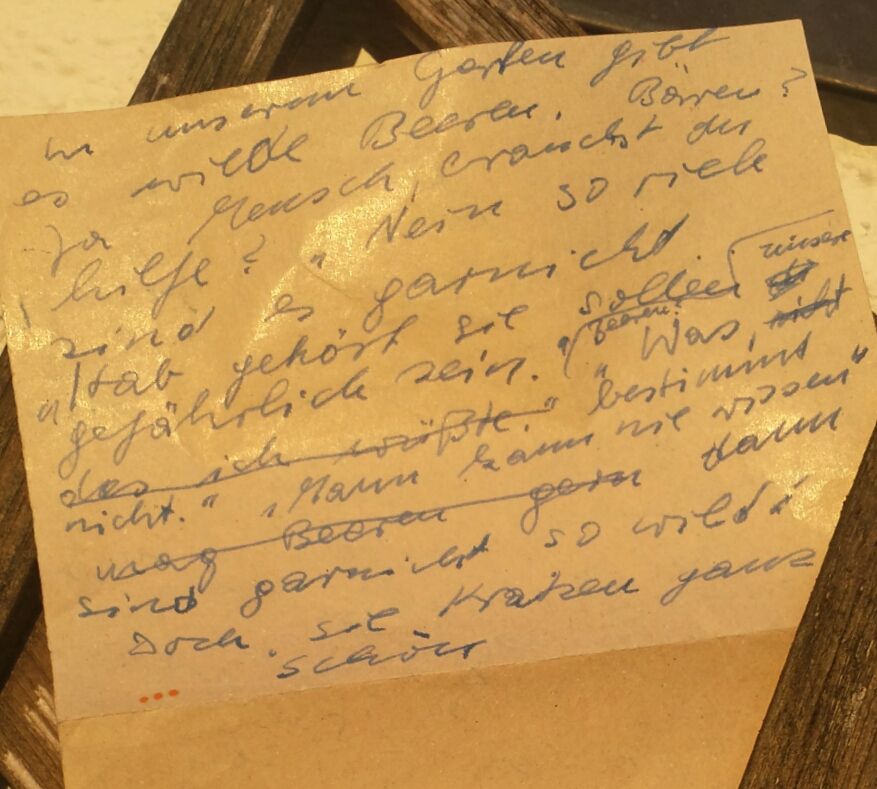 in unserem Garten gibt
es wilde Beeren. Bären?
Ja Mensch, brauchst du
hilfe? "Nein so viele
sind es garnicht
"Hab gehört sie sollen unsere
gefährlich sein." Beeren? "Was, nicht
das ich wüßte." bestimmt
nicht." "Mann kann nie wissen"
mag Beeren gern dann
sind garnicht so wild!
Doch. sie kratzen ganz
schön
...